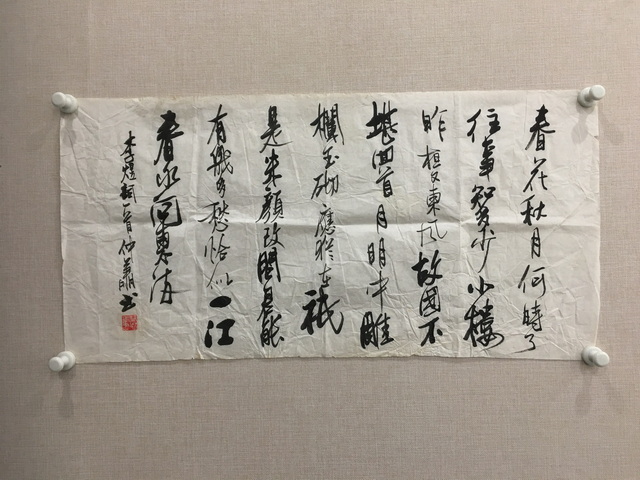 春花秋月何時了
往事知多少小樓
昨夜東風故國不
堪回首月明中雕
欄玉砌應猶在祇
是朱顏改問君能
有幾多愁恰似一江
春水向東流
李煜詞一首